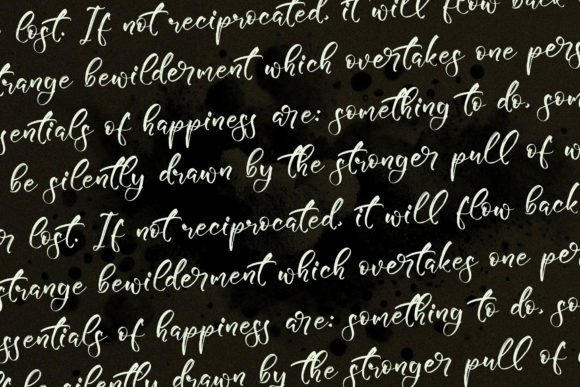 lost. If not reciprocated, it will flow back
trange bewilderment which overtakes one pers
ssentials of happiness are: something to do, som
be silently drawn by the stronger pull of w
r lost. If not reciprocated, it will flow back
strange bewilderment which overtakes one per
ssentials of happiness are: something to do, so
be silently drawn by the stronger pull of